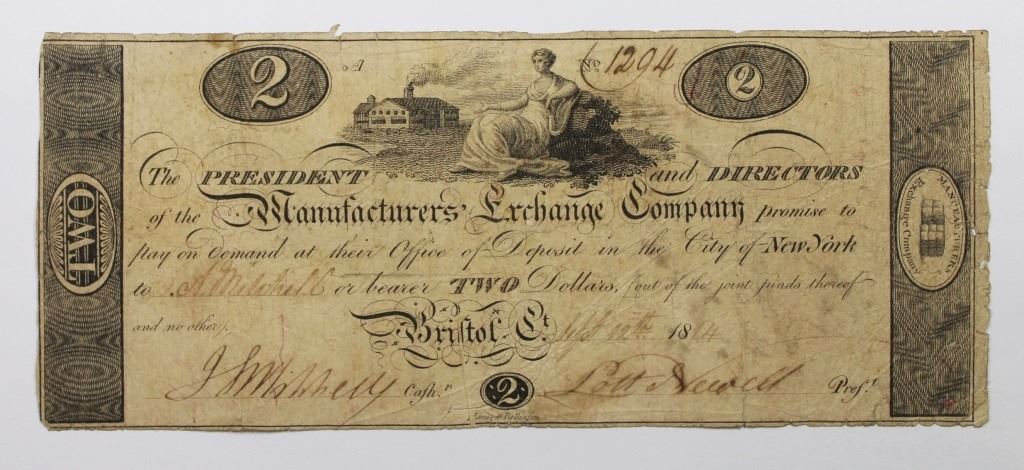 2 A No 1294 2
The PRESIDENT and DIRECTORS
of the Manufacturers' Exchange Company promise to
pay on Demand at their Office of Deposit in the City of New York
to A. Mitchell or bearer TWO Dollars, (out of the joint funds thereof
and no other). Bristol Ct. 12th 1814
Cash.r 2 Lott Newell Pres.t
TWO
MANUFACTURERS
Exchange Company